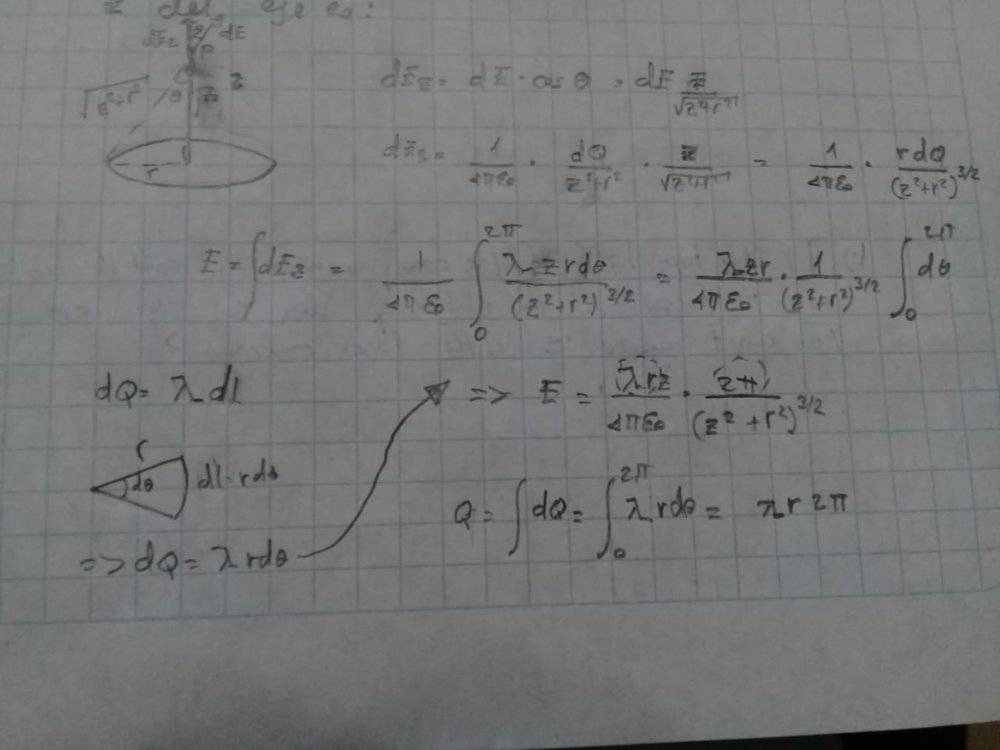 z del eje es:
dEz dE
z
√z²+r² θ
r
dEz = dE · cos θ = dE z/√z²+r²
dEz = 1/4πε₀ · dQ/z²+r² · z/√z²+r² = 1/4πε₀ · rdQ/(z²+r²)^3/2
E = ∫dEz = 1/4πε₀ ∫₀^2π λzrdθ/(z²+r²)^3/2 = λzr/4πε₀ · 1/(z²+r²)^3/2 ∫₀^2π dθ
dQ = λdl
=> E = (λrz/4πε₀) · (2π)/(z²+r²)^3/2
r
dθ dl·rdθ
Q = ∫dQ = ∫₀^2π λrdθ = λr2π
=> dQ = λrdθ